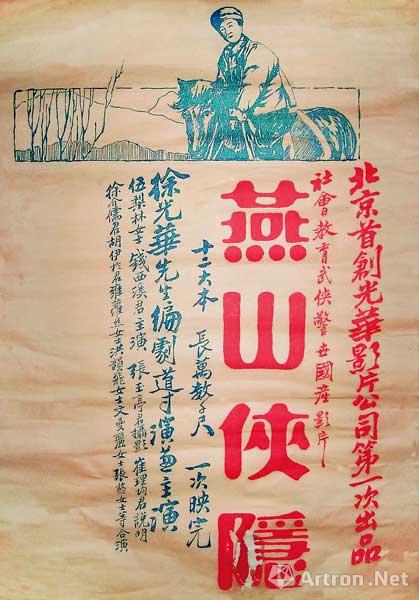 北京首創光華影片公司第一次出品
社會教育武俠警世國產影片
燕山俠隱
十二大本 長萬數千尺 一次映完
徐光華先生編劇導演兼主演
伍梨林女士 錢西溪君主演 張玉亭君攝影 崔理均君說明
徐介儒君胡伊 君 女士洪韻 女士文曼 女士張 女士等合演
雅昌藝術網
Artron.Net